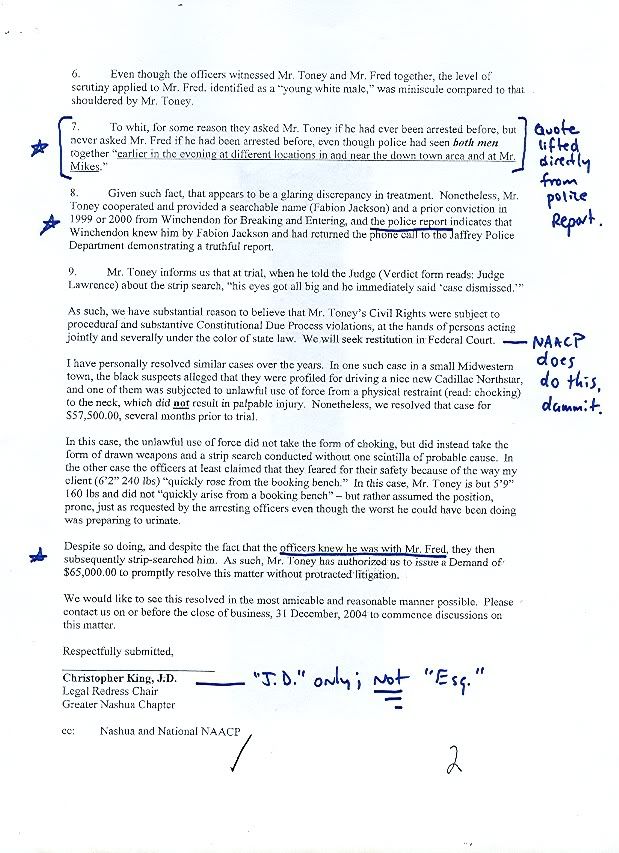 6. Even though the officers witnessed Mr. Toney and Mr. Fred together, the level of
scrutiny applied to Mr. Fred, identified as a "young white male," was miniscule compared to that
shouldered by Mr. Toney.
7. To whit, for some reason they asked Mr. Toney if he had ever been arrested before, but
never asked Mr. Fred if he had been arrested before, even though police had seen both men
together "earlier in the evening at different locations in and near the down town area and at Mr.
Mikes."
Quote
lifted
directly
from
police
Report.
8. Given such fact, that appears to be a glaring discrepancy in treatment. Nonetheless, Mr.
Toney cooperated and provided a searchable name (Fabion Jackson) and a prior conviction in
1999 or 2000 from Winchendon for Breaking and Entering, and the police report indicates that
Winchendon knew him by Fabion Jackson and had returned the phone call to the Jaffrey Police
Department demonstrating a truthful report.
9. Mr. Toney informs us that at trial, when he told the Judge (Verdict form reads: Judge
Lawrence) about the strip search, "his eyes got all big and he immediately said 'case dismissed.'"
As such, we have substantial reason to believe that Mr. Toney's Civil Rights were subject to
procedural and substantive Constitutional Due Process violations, at the hands of persons acting
jointly and severally under the color of state law. We will seek restitution in Federal Court.
NAACP
does
do this,
dammit.
I have personally resolved similar cases over the years. In one such case in a small Midwestern
town, the black suspects alleged that they were profiled for driving a nice new Cadillac Northstar,
and one of them was subjected to unlawful use of force from a physical restraint (read: chocking)
to the neck, which did not result in palpable injury. Nonetheless, we resolved that case for
$57,500.00, several months prior to trial.
In this case, the unlawful use of force did not take the form of choking, but did instead take the
form of drawn weapons and a strip search conducted without one scintilla of probable cause. In
the other case the officers at least claimed that they feared for their safety because of the way my
client (6'2" 240 lbs) "quickly rose from the booking bench." In this case, Mr. Toney is but 5'9"
160 lbs and did not "quickly arise from a booking bench" – but rather assumed the position,
prone, just as requested by the arresting officers even though the worst he could have been doing
was preparing to urinate.
Despite so doing, and despite the fact that the officers knew he was with Mr. Fred, they then
subsequently strip-searched him. As such, Mr. Toney has authorized us to issue a Demand of
$65,000.00 to promptly resolve this matter without protracted litigation.
We would like to see this resolved in the most amicable and reasonable manner possible. Please
contact us on or before the close of business, 31 December, 2004 to commence discussions on
this matter.
Respectfully submitted,
Christopher King, J.D.
"J.D." only; Not "Esq."
Legal Redress Chair
Greater Nashua Chapter
cc: Nashua and National NAACP
2